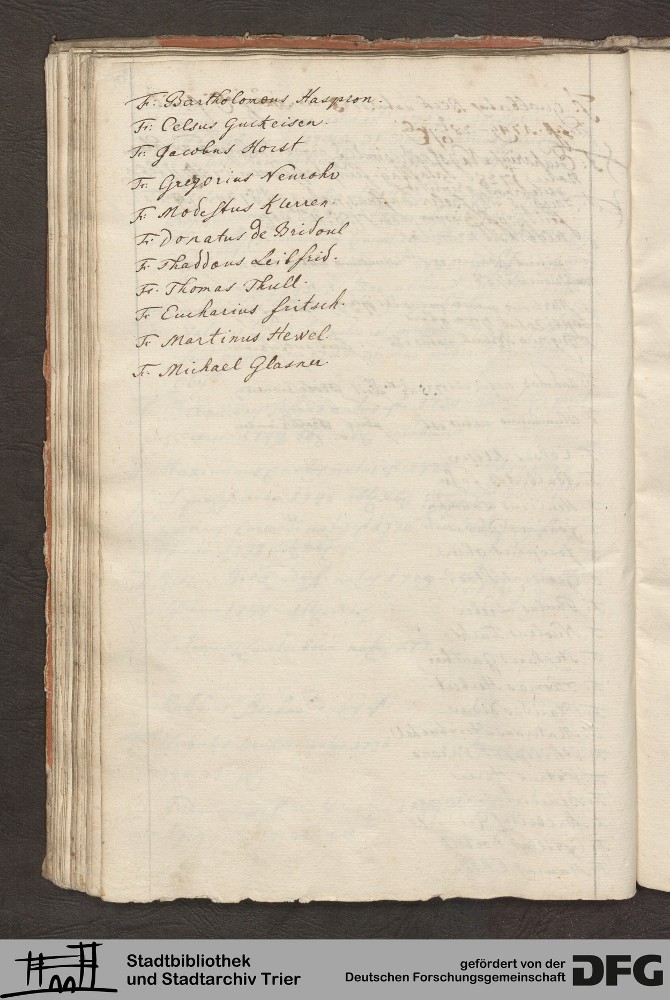 Fr: Bartholomæus Haspron.
Fr: Celsus Guckeisen.
Fr: Jacobus Horst
Fr: Gregorius Neurohr
Fr: Modestus Klerren.
Fr: Donatus de Bridoul
Fr. Thaddæus Leibfrid.
Fr. Thomas Thull.
Fr Eucharius Fritsch.
Fr Martinus Hewel.
Fr. Michael Glasner.
Stadtbibliothek
und Stadtarchiv Trier
gefördert von der
Deutschen Forschungsgemeinschaft
DFG